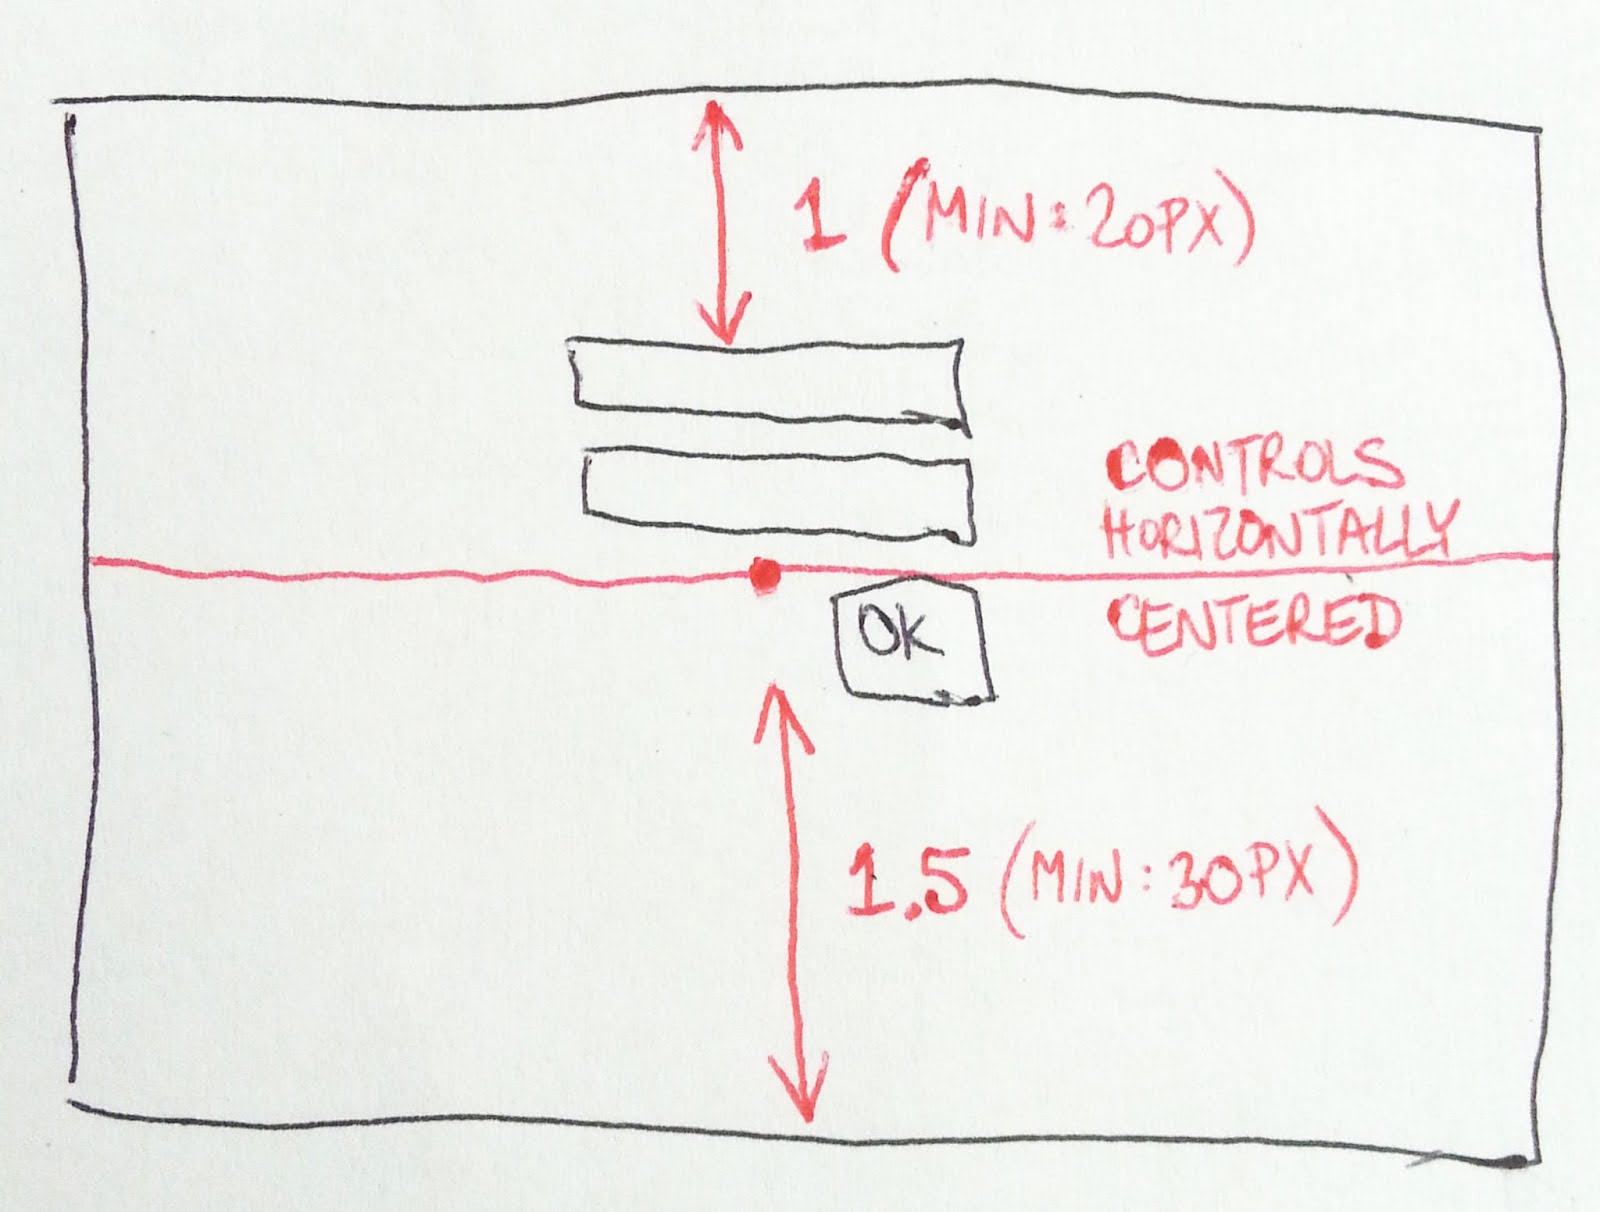 1 (MIN: 20PX)
CONTROLS
HORIZONTALLY
CENTERED
OK
1.5 (MIN: 30PX)